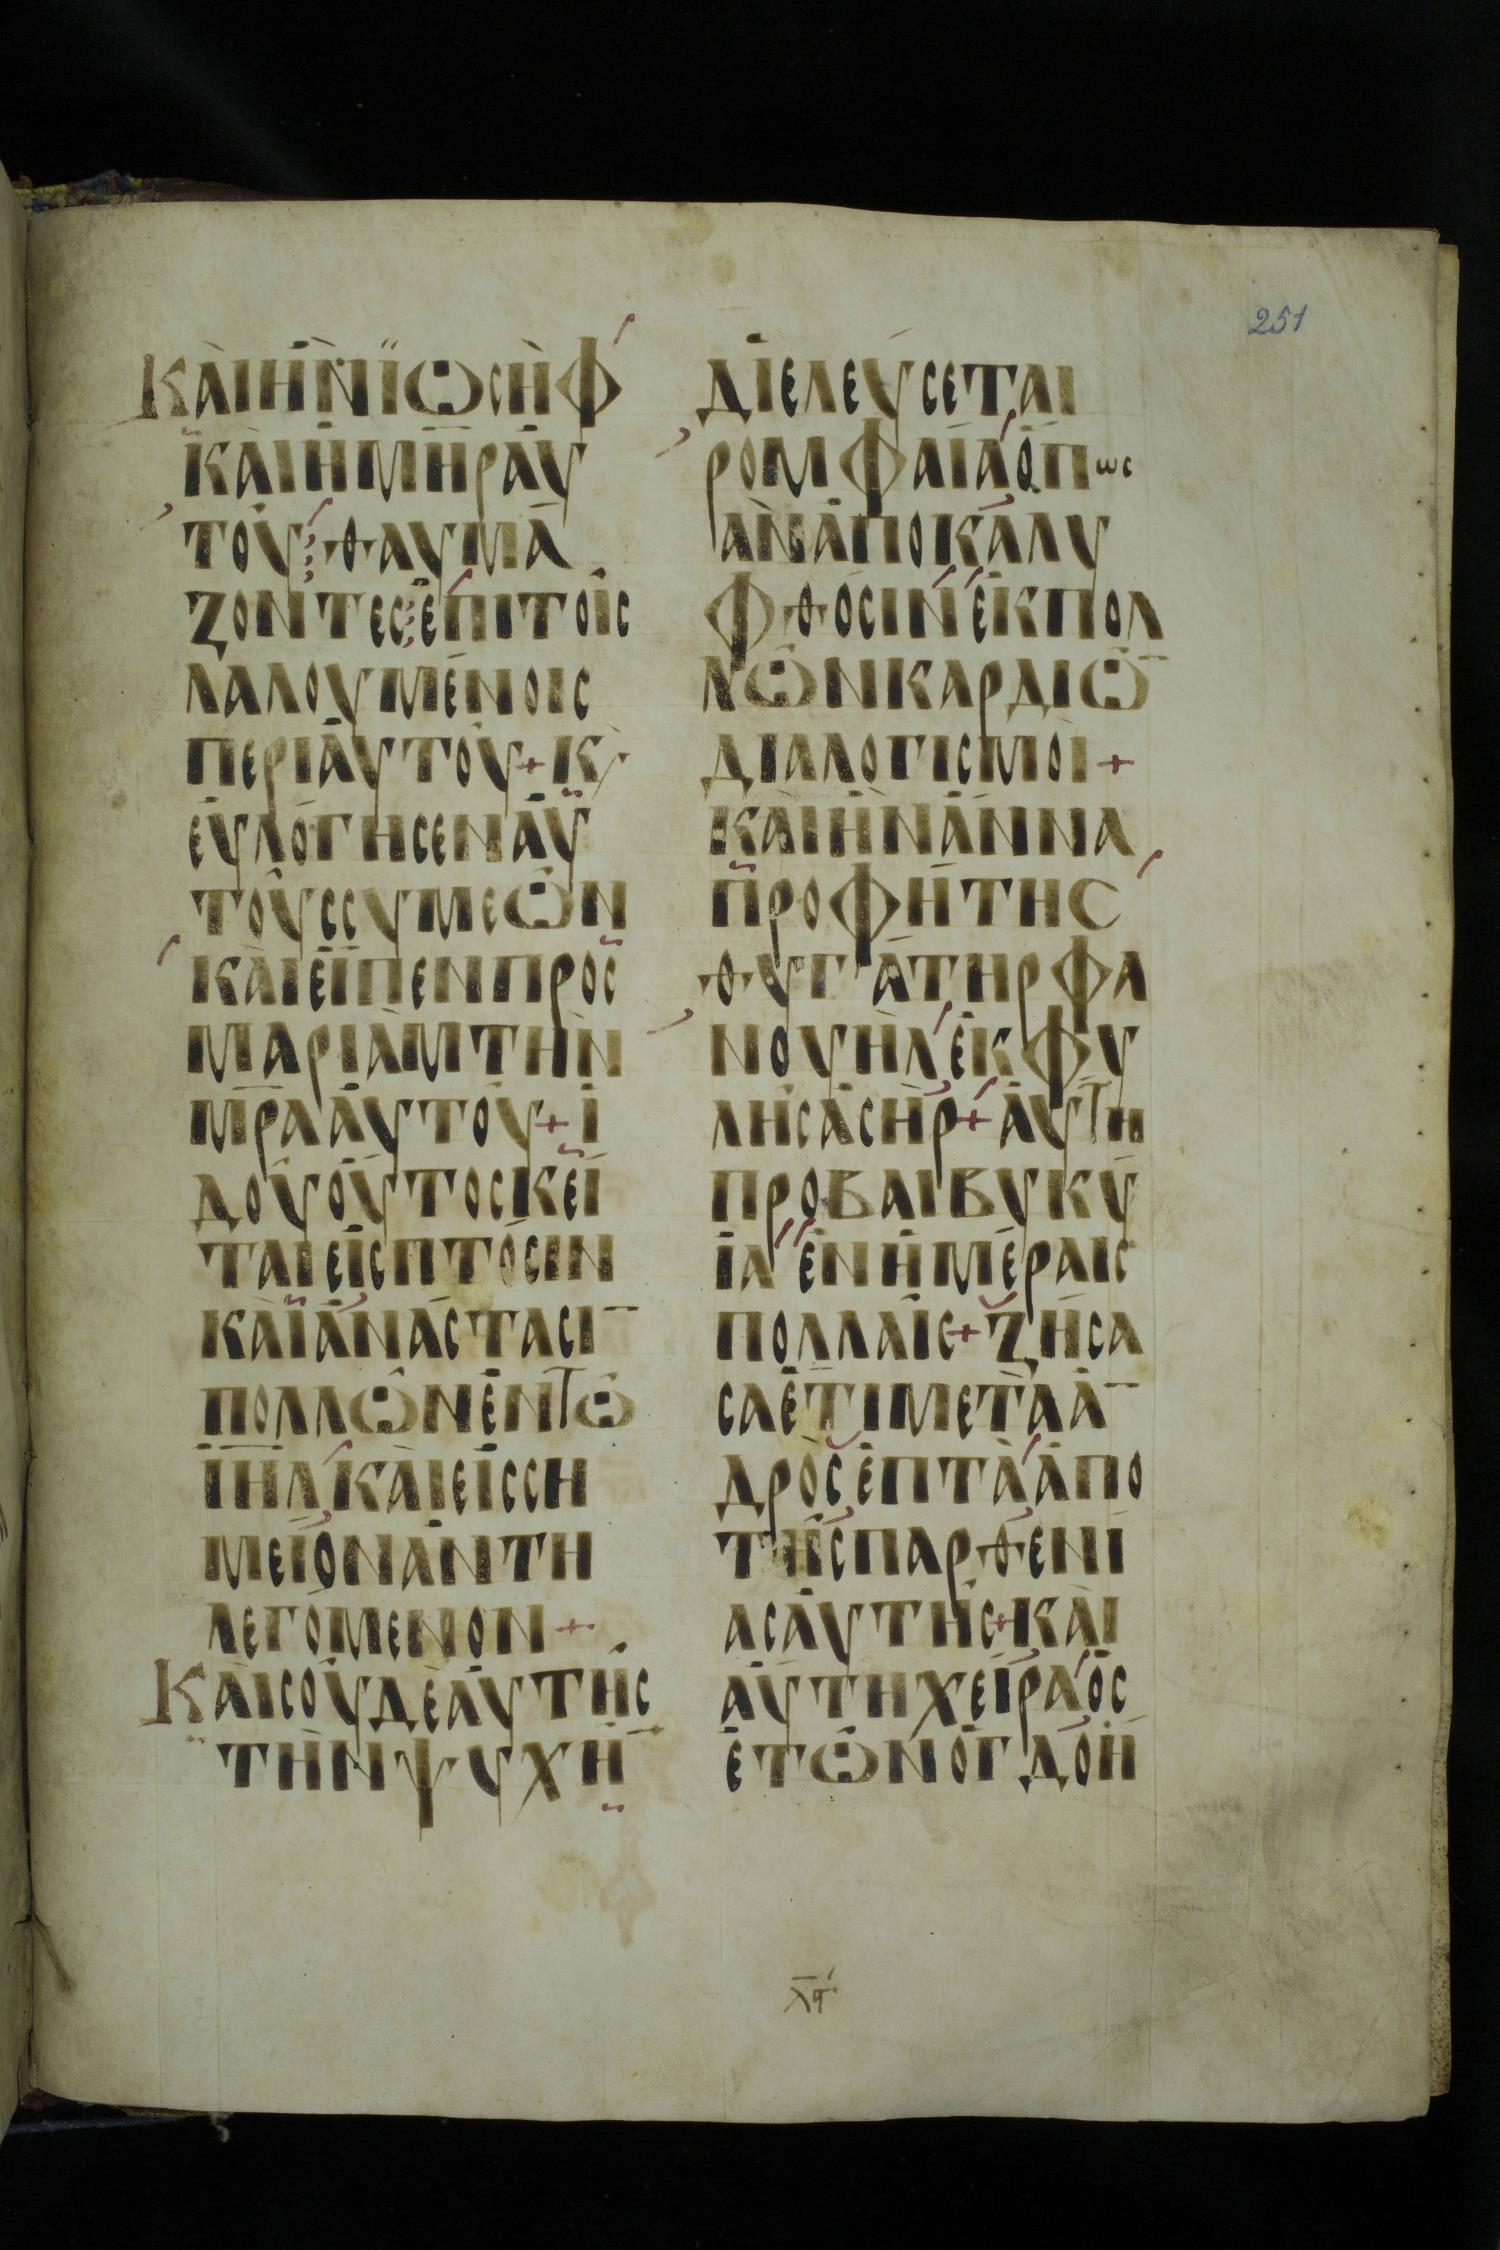 251
ΚΑΙΗΝΪΩΣΗΦ
ΚΑΙΗΜΗΡΑΥ
ΤΟΥ⁝ΘΑΥΜΑ
ΖΟΝΤΕΣ⁝ΕΠΙΤΟΙΣ
ΛΑΛΟΥΜΕΝΟΙΣ
ΠΕΡΙΑΥΤΟΥ+Κ
ΕΥΛΟΓΗΣΕΝΑΥ
ΤΟΥΣΣΥΜΕΩΝ
ΚΑΙΕΙΠΕΝΠΡΟΣ
ΜΑΡΙΑΜΤΗΝ
Μ̅Ρ̅Α̅ΑΥΤΟΥ+Ι
ΔΟΥΟΥΤΟΣΚΕΙ
ΤΑΙΕΙΣΠΤΟΣΙΝ
ΚΑΙΑΝΑΣΤΑΣΙ¯
ΠΟΛΛΩΝΕΝΤΩ
Ι̅Η̅Λ̅ΚΑΙΕΙΣΣΗ
ΜΕΙΟΝΑΝΤΗ
ΛΕΓΟΜΕΝΟΝ+
ΚΑΙΣΟΥΔΕΑΥΤΗΣ
ΤΗΝΨΥΧΗ¯
ΔΙΕΛΕΥΣΕΤΑΙ
ΡΟΜΦΑΙΑΟΠως
ΑΝΑΠΟΚΑΛΥ
ΦΘΟΣΙΝΕΚΠΟΛ
ΛΩΝΚΑΡΔΙΩ¯
ΔΙΑΛΟΓΙΣΜΟΙ+
ΚΑΙΗΝΑΝΝΑ
ΠΡΟΦΗΤΗΣ
ΘΥΓΑΤΗΡΦΑ
ΝΟΥΗΛΕΚΦΥ
ΛΗΣΑΣΗΡ+ΑΥΤΗ
ΠΡΟΒΑΙΒΥΚΥ
ΙΑΕΝΗΜΕΡΑΙΣ
ΠΟΛΛΑΙΣ+ΖΗΣΑ
ΣΑΕΤΙΜΕΤΑΑ¯
ΔΡΟΣΕΠΤΑΑΠΟ
ΤΗΣΠΑΡΘΕΝΙ
ΑΣΑΥΤΗΣ+ΚΑΙ
ΑΥΤΗΧΕΙΡΑΟΣ
ΕΤΩΝΟΓΔΟΗ